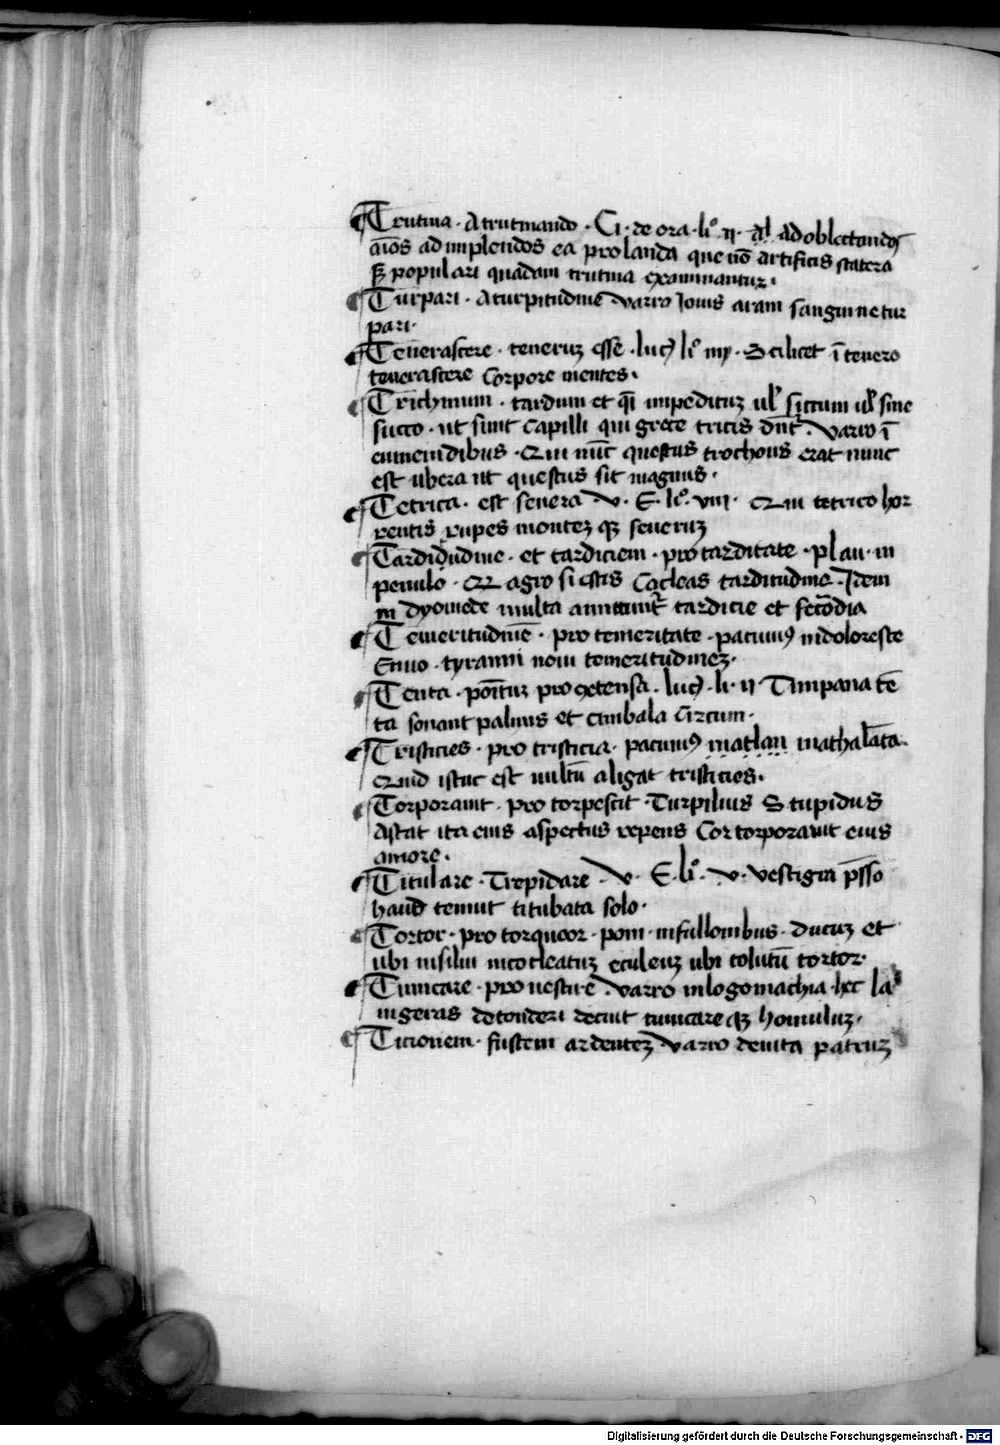 Trutina · A trutinando · Ci · de ora · li° · ii · Al ad oblectandos
aīos ad implendos ea prolanda que nō artificis statera
Sꝫ populari quadam trutina examinantur ·
Turpari · A turpitudine Varro Iouis aram sanguine tur
pari ·
Tenerascere · teneruꝫ esse · luc9 li° iiij · Scilicet ī tenero
tenerascere Corpore mentes ·
Trichinum · tardum et q̄i impedituꝫ ul' siccum ul' sine
succo · ut sunt Capilli qui grece tricis dn̄r · Varro ī
eumenidibus · Qui nūc questus trochous erat nunc
est ubera ut questus sit magnus ·
Tetrica · est seuera V · E · li° · viii · Qui tetrice hor
rentis rupes monteꝫ qꝫ seueruꝫ
Tarditudine · et tardiciem · pro tarditate · plau · in
penulo · agro si estis Cocleas tarditudine · Idem
in dyomede multa tardicie et secōdia
Temeritudinē · pro temeritate · pacuuiꝰ in doloreste
Ennio · tyranni noui temeritudineꝫ ·
Tenta · ponituꝫ pro extensa · lucꝰ · li · ii · Timpana tē
ta sonant palmis et cimbala Circum ·
Tristicies · pro tristicia · pacuuiꝰ matlan mathalāta ·
Quid istuc est uultū aligat tristicies ·
Torporauit · pro torpescit · Turpilius Stupidus
Astat ita eius aspectus repens Cor torporauit eius
amore ·
Titulare · Trepidare · V · E · li° · V · Vestigia p̄sso
haud tenuit titubata solo ·
Tortor · pro torqueor · pom · in fullonibus · ducuꝫ et
ubi insilui in cocleatuꝫ eculeuꝫ ubi tolutū tortor ·
Tunicare · pro uestire · Varro in logomachia · hec la
nigeras detonderi docuit tunicare qꝫ homuluꝫ ·
Ticionem · fustem ardenteꝫ Varro de uita patruꝫ
Digitalisierung gefördert durch die Deutsche Forschungsgemeinschaft - DFG